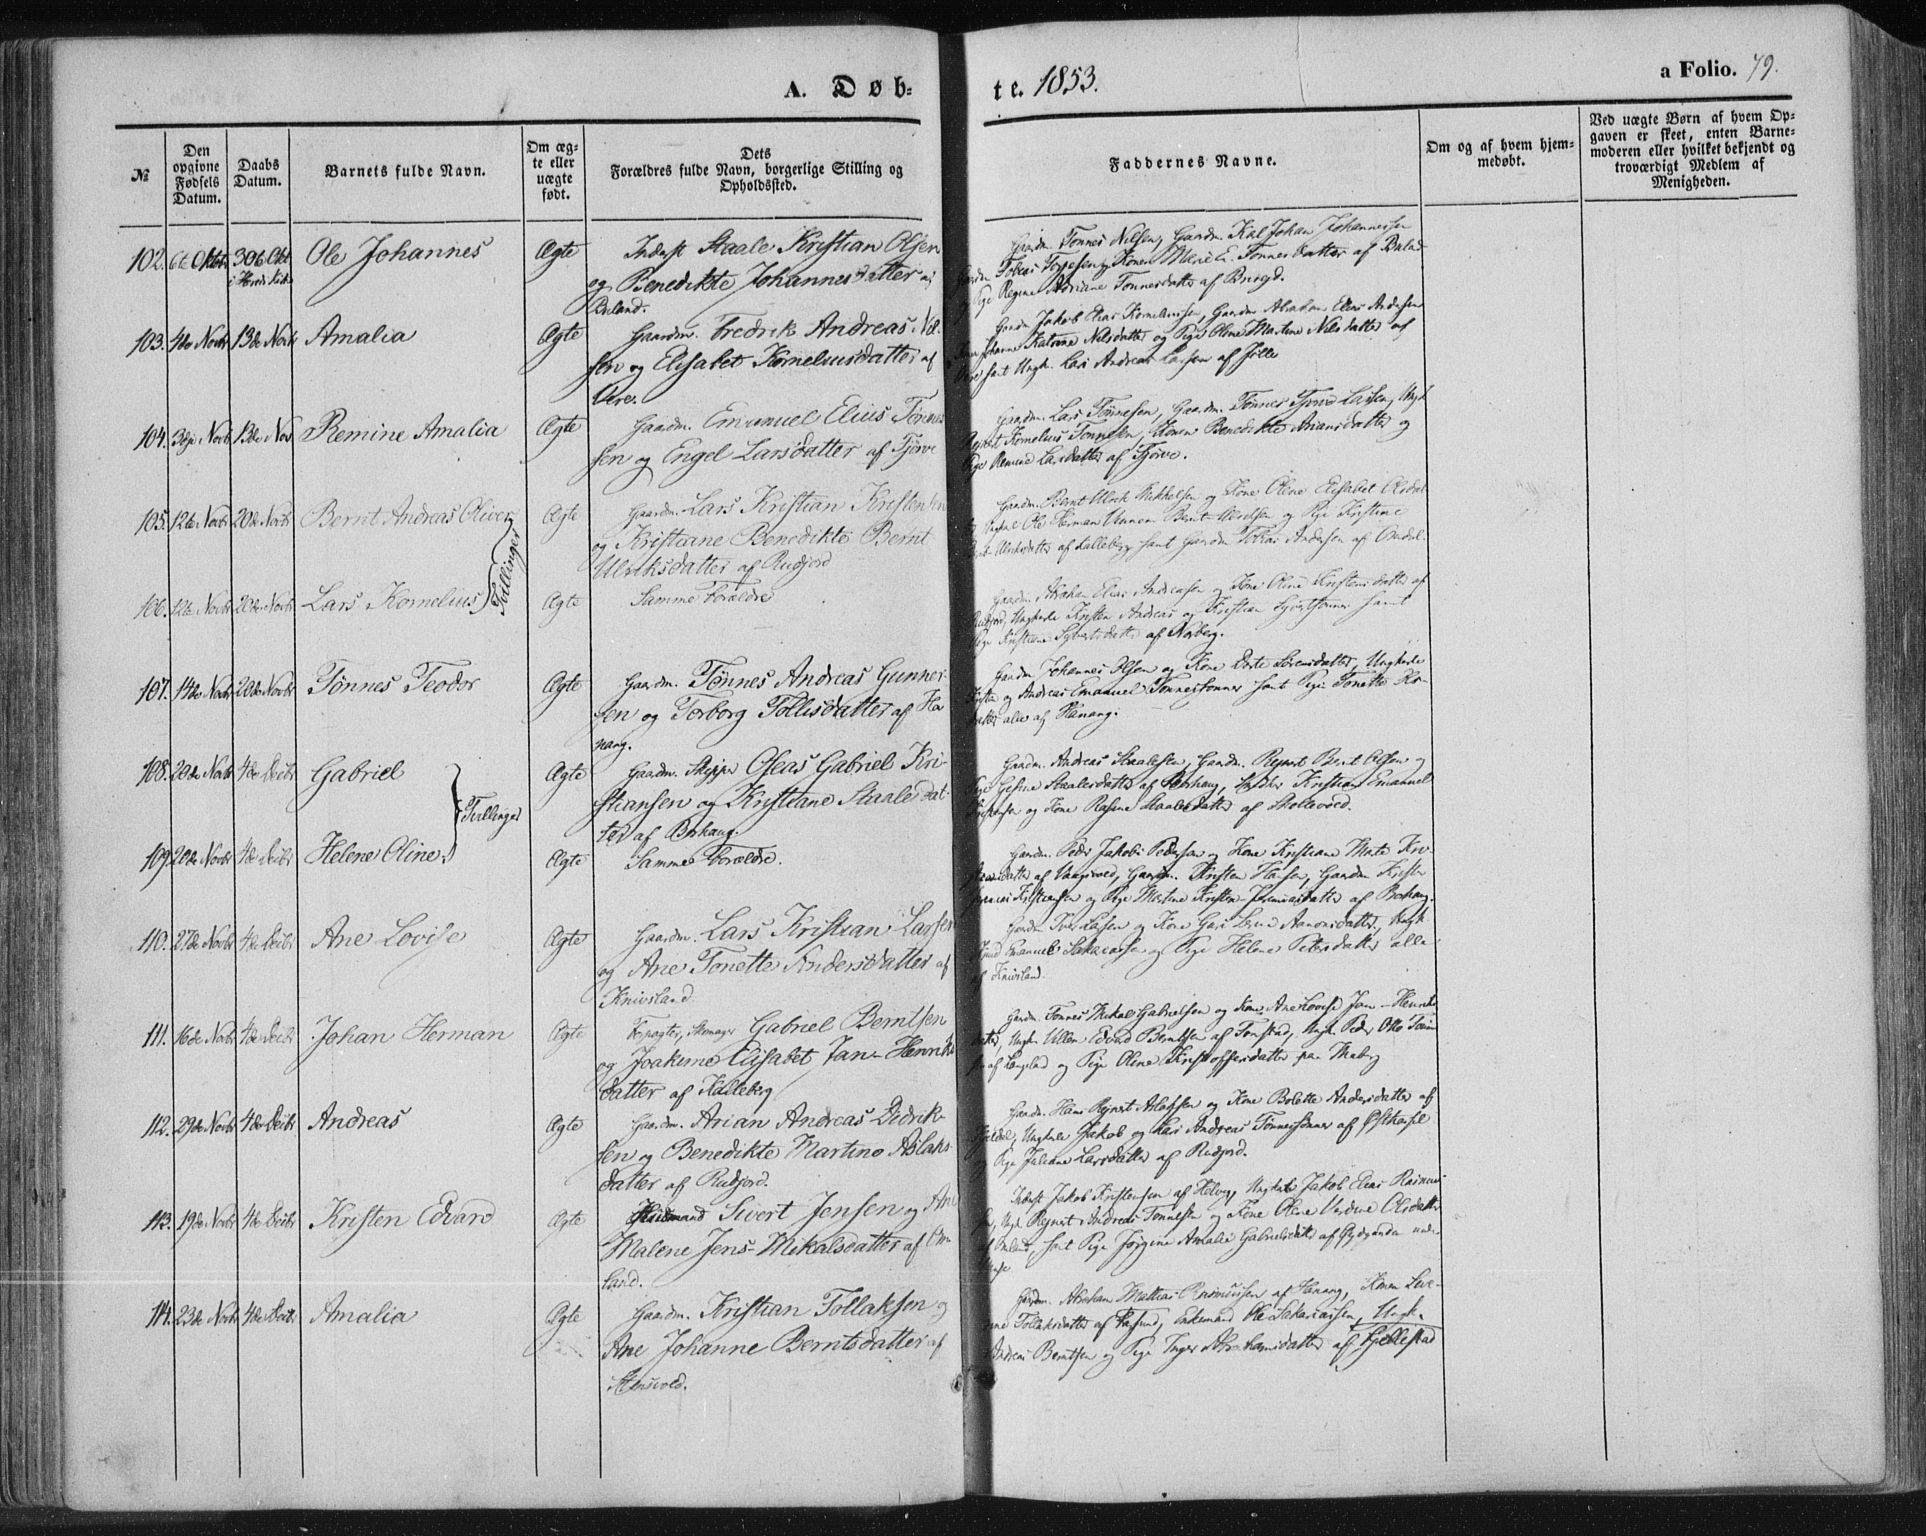 A. Døb-
te. 1853.
a Folio. 79.
№
Den opgivne Fødsels Datum.
Daabs Datum.
Barnets fulde Navn.
Om ægte eller uægte født.
Dets Forældres fulde Navn, borgerlige Stilling og Opholdssted.
Faddernes Navne.
Om og af hvem hjemmedøbt.
Ved uægte Børn af hvem Opgaven er skeet, enten Barnemoderen eller hvilket bekjendt og troværdigt Medlem af Menigheden.
102. 6te Oktbr 30te Okt Ole Johannes Ægte Inderst Staale Kristian Olsen
og Benedikte Johannesdatter af
Buland.
Gaardm. Tønnes Nilsen, Gaardm. Kal Johan Johannessen
Gaardm Tobias Torgersen, Konen Marie E. Tønnesdatter af Buland
Pige Regine Adriane Tønnesdatter af
103. 4de Novbr 13de Novb Amalia Ægte Gaardm. Fredrik Andreas Nil-
sen og Elisabet Korneliusdatter af
Ore.
Gaardm Jakob Elias Korneliussen, Gaardm Abraham Elias Andersen
Johanne Katrine Nilsdatter og Pige Oline Martine Nilsdatter af
Ore samt Ungk. Lars Andreas Larsen af Jølle
104. 3die Novbr 13de Nov Remine Amalia Ægte Gaardm. Emanuel Elius Tønnes
sen og Engel Larsdatter af Tjørve
Gaardm. Lars Tønnesen, Gaardm. Tønnes Tjørve Larsen, Ungk
Reinert Kornelius Tønnesen, Konen Benedikte Ariansdatter og
Pige Remine Larsdatter af Tjørve.
105. 12te Novbr 20de Novbr Bernt Andreas Oliver Ægte Gaardm. Lars Kristian Kristensen
og Kristiane Benedikte Bernt
Ulriksdatter af Rudjord
Tvillinger
Gaardm. Bernt Ulrik Mikkelsen og Kone Oline Elisabet
Ole Herman Bernt-Ulriksen og Pige Kristine
Bernt-Ulriksdatter af Kalleberg samt Gaardm Tobias Andersen af Omdal.
106. 12te Novbr 20de Novbr Lars Kornelius Ægte Samme Forældre
Gaardm. Abraham Elias Andreassen og Kone Oline Kristensdatter af
Rudjord, Ungkarle Kristen Andreas og Kristian samt
Pige Kristiane Syvertsdatter af Norberg.
107. 14de Novbr 20de Novbr Tønnes Teodor Ægte Gaardm. Tønnes Andreas Gunner-
sen og Torborg Tollisdatter af Ha
nang.
Gaardm Johannes Olsen og Kone Dorte Sørensdatter, Ungkarle
Kristen og Andreas Emanuel Tønnessønner samt Pige Tonette
datter alle af Hanang.
108. 20de Novbr 4de Decbr Gabriel Ægte Gaardm. Skipper Oseas Gabriel Kri-
stiansen og Kristiane Staalesdat-
ter af Borhaug.
Tvillinger
Gaardm. Andreas Staalesen, Gaardm. Reinert Bernt Olsen og
Pige Gesine Staalesdatter af Borhaug, Kristian Emanuel
og Kone Rasine Staalesdatter af Skollevold.
109. 20de Novbr 4de Decbr Helene Oline Ægte Samme Forældre.
Gaardm. Peder Jakob Pedersen og Kone Kristiane Marte Kri-
stiansdatter af Vaagsvold, Gaardm. Kristen Hansen, Gaardm Kristen
Jeremias Kristiansen og Pige Martine Kristen-Jeremiasdatter af Borhaug.
110. 27de Novbr 4de Decbr Ane Lovise Ægte Gaardm. Lars Kristian Larsen
og Ane Tonette Andersdatter af
Knivsland
Gaardm Iver Larsen og Kone Guri Serine Aanonsdatter, Ungk
Emanuel Sakariassen og Pige Helene Petersdatter alle
af Knivsland
111. 16de Novbr 4de Decbr Johan Herman Ægte Forpagter, Skomager Gabriel Berntsen
og Joakime Elisabet Jan-Henriks
datter af Kalleberg
Gaardm. Tønnes Mikal Gabrielsen og Kone Ane Lovise Jan-Henriks
datter, Ungk. Edvard Berntsen af Tonstad, Ungk. Peder Otto
af Langeland og Pige Oline Kristoffersdatter paa Maberg
112. 29de Novbr 4de Decbr Andreas Ægte Gaardm. Arian Andreas Didrik-
sen og Benedikte Martine Aslaks
datter af Rudjord.
Gaardm. Hans Reinert Aslaksen og Kone Bolette Andersdatter af
Ungkarle Jakob og Lars Andreas Tønnessønner af Østhasel
og Pige Juliane Larsdatter af Rudjord.
113. 19de Novbr 4de Decbr Kristen Edvard Ægte Huusmand Sivert Jensen og Ane
Malene Jens-Mikalsdatter af Om
land.
Inderst Jakob Kristensen af Helvig, Ungkarle Jakob Elias Rasmus-
sen, Ungk Reinert Andreas Tønnesen og Kone Oline Olsdatter
af Omland, samt Pige Jørgine Amalie Gabrielsdatter af
114. 23de Novbr 4de Decbr Amalia Ægte Gaardm. Kristian Tollaksen og
Ane Johanne Berntsdatter af
Stensvold.
Gaardm. Abraham Mathias Rasmussen af Hanang, Konen
Tollaksdatter af Enkemand Ole Sakariassen, Ungk.
Andreas Berntsen og Pige Inger Abrahamsdatter af Fjellestad